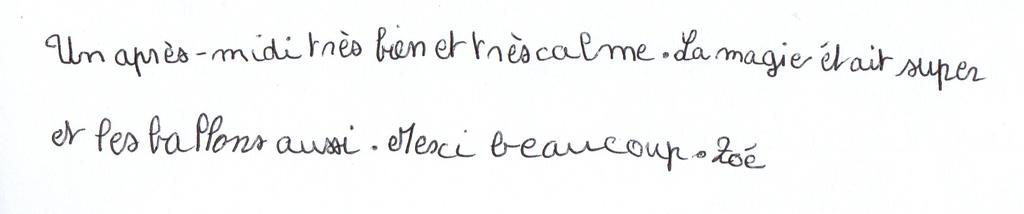 Un après-midi très bien et très calme. La magie était super
et les ballons aussi. Merci beaucoup. Zoé